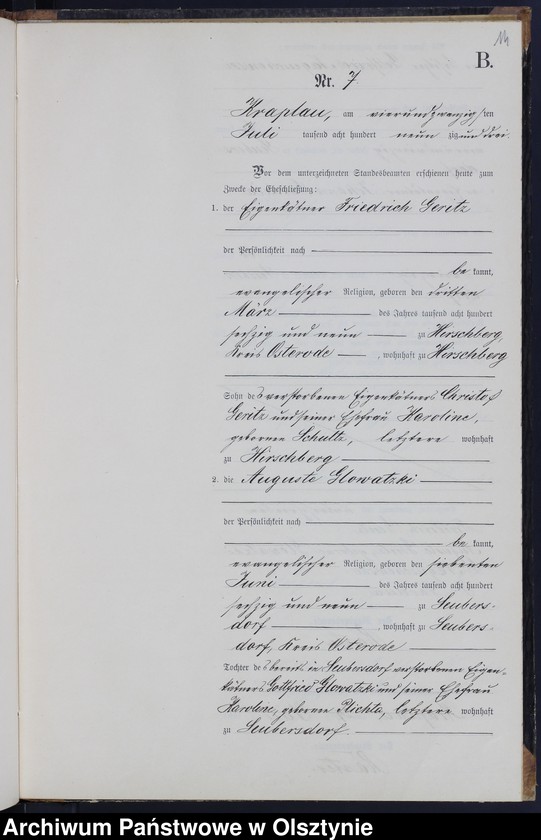 14
B.
Nr. 7.
Kraplau, am vierundzwanzigsten
Juli tausend acht hundert neunzig und drei.
Vor dem unterzeichneten Standesbeamten erschienen heute zum
Zwecke der Eheschließung:
1. der Eigenkätner Friedrich Geritz
der Persönlichkeit nach
be kannt,
evangelischer Religion, geboren den dritten
März des Jahres tausend acht hundert
sechzig und neun zu Hirschberg,
Kreis Osterode, wohnhaft zu Hirschberg
Sohn des verstorbenen Eigenkätners Christof
Geritz und seiner Ehefrau Karoline,
geborenen Schultz, letztere wohnhaft
zu Hirschberg
2. die Auguste Glowatzki
der Persönlichkeit nach
be kannt,
evangelischer Religion, geboren den siebenten
Juni des Jahres tausend acht hundert
sechzig und neun zu Seubers-
dorf, wohnhaft zu Seubers-
dorf, Kreis Osterode
Tochter des bereits in Seubersdorf verstorbenen Eigen-
kätners Gottfried Glowatzki und seiner Ehefrau
Karoline, geborene Plichta, letztere wohnhaft
zu Seubersdorf.
Archiwum Państwowe w Olsztynie